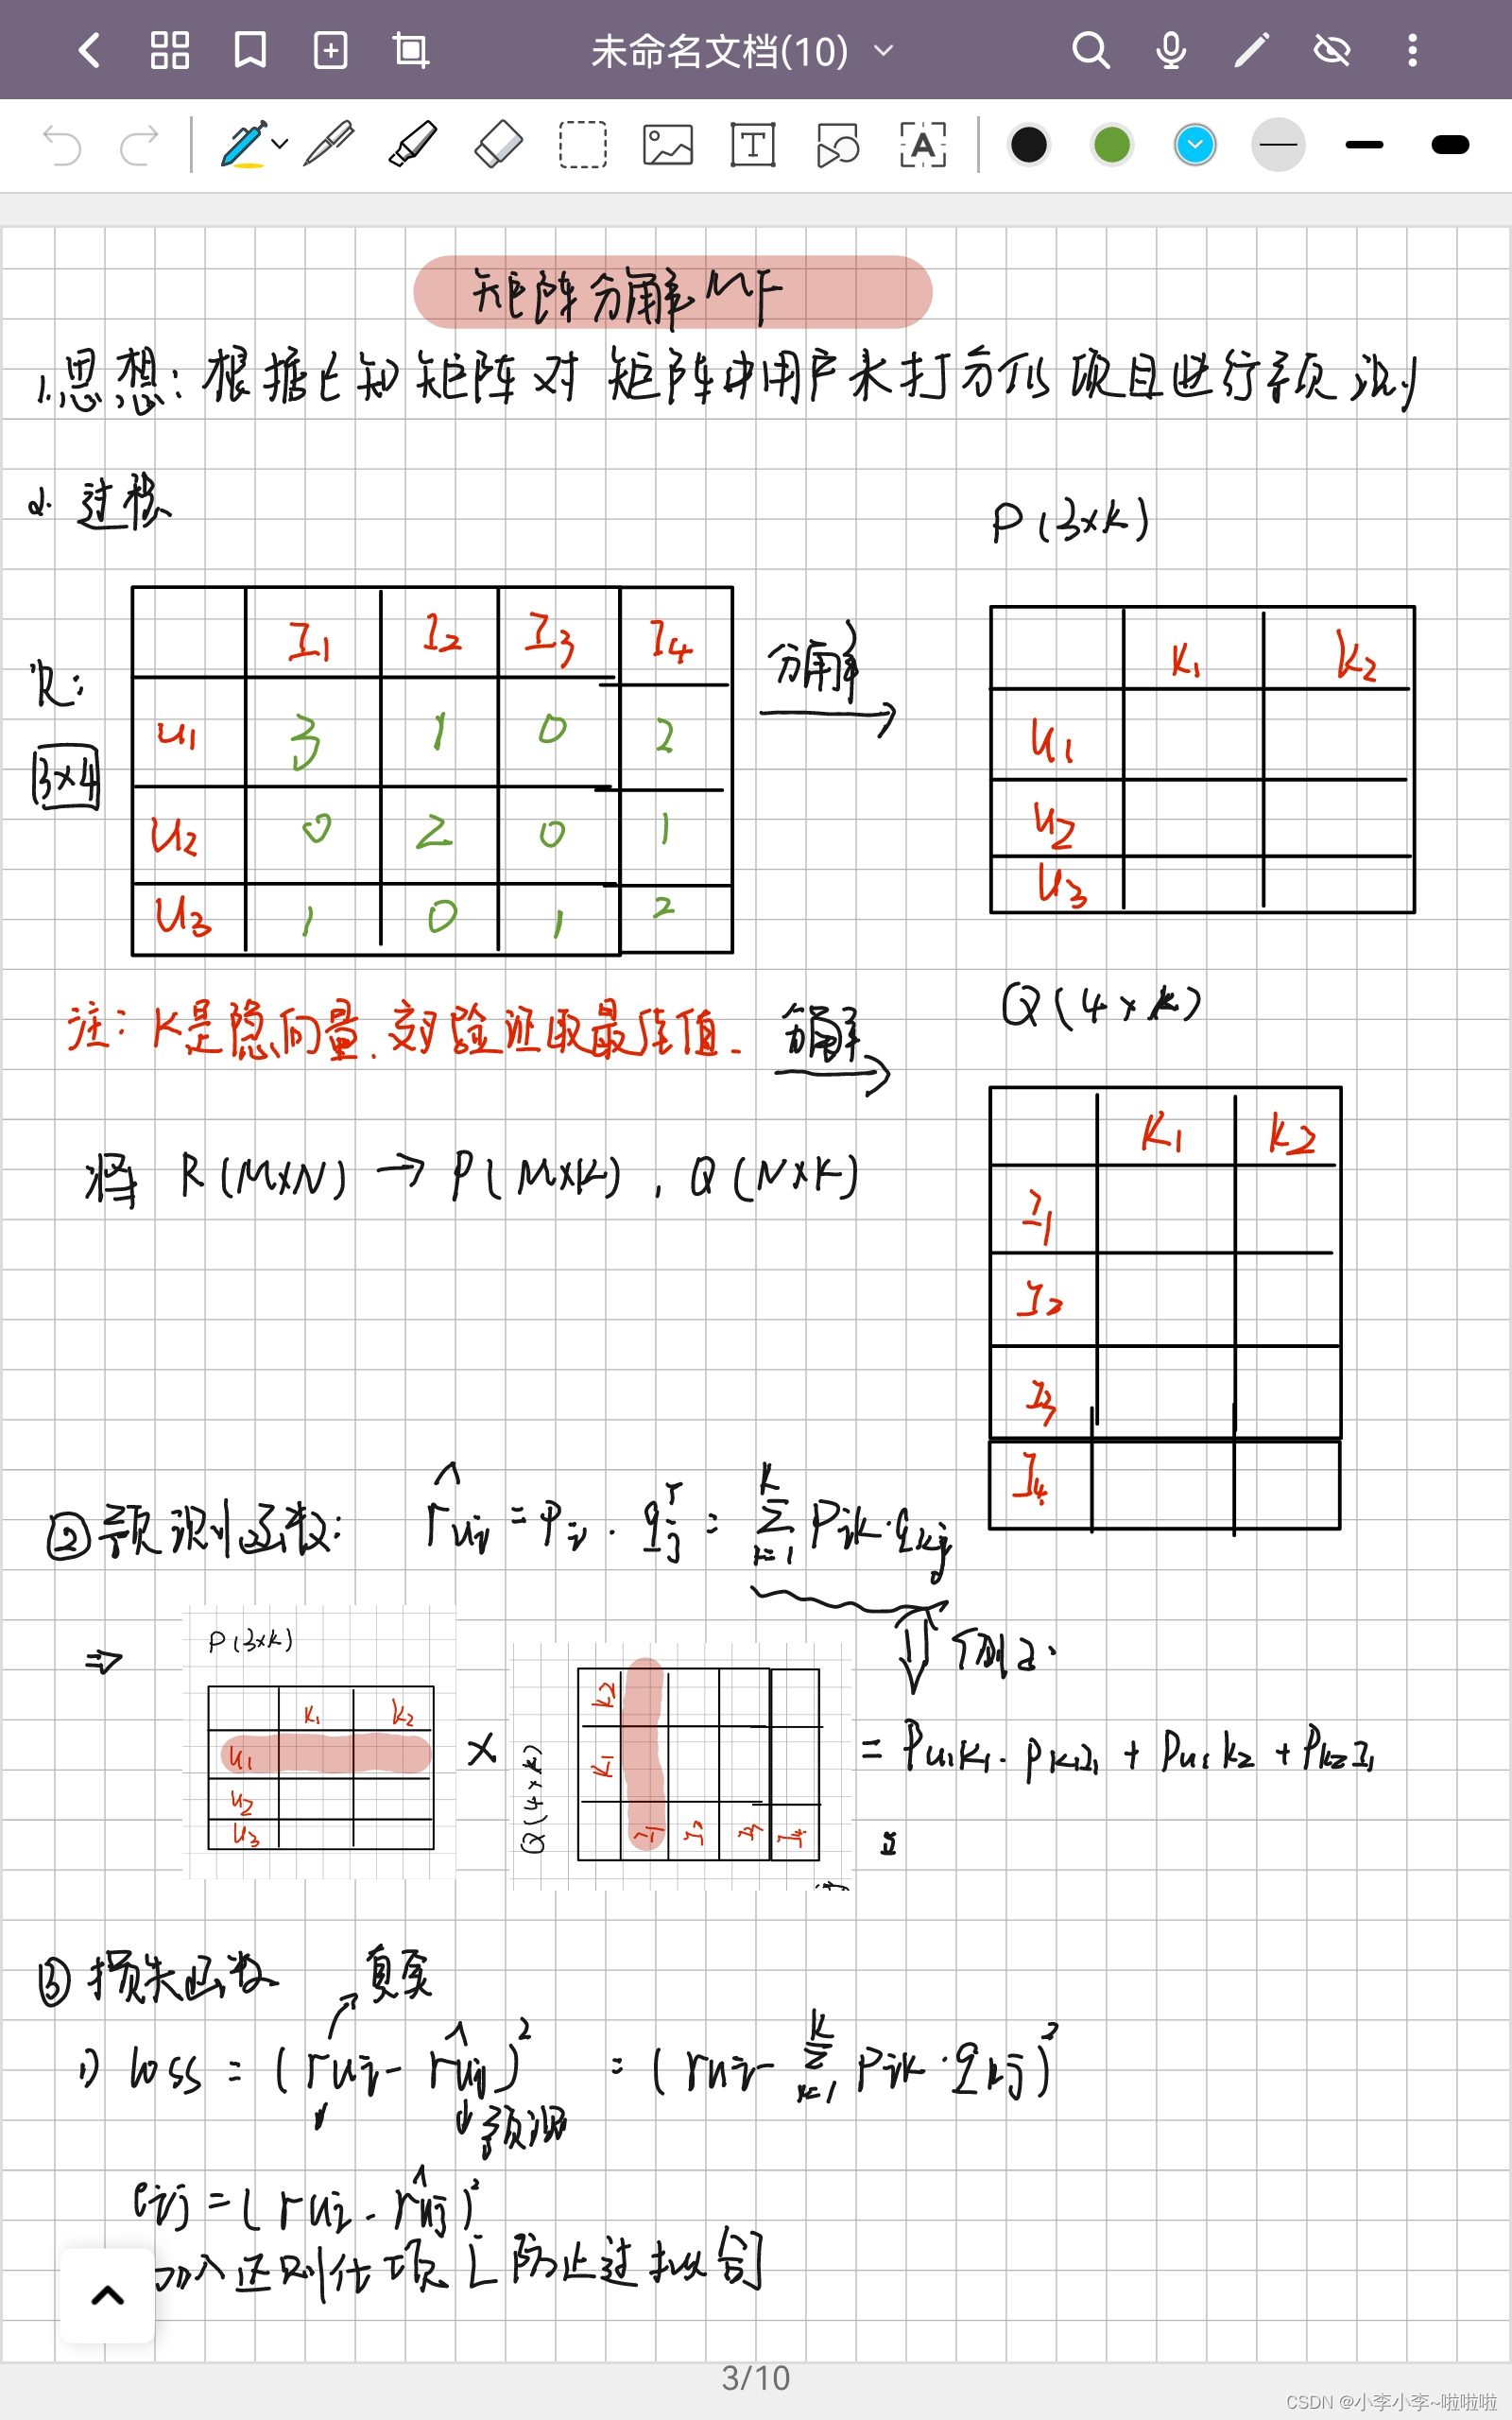 未命名文档(10)
T
A
矩阵分解MF
1.思想:根据已知矩阵对矩阵中用户未打分的项目进行预测
2.过程
P(3×K)
R:
3×4
I1 I2 I3 I4
u1 3 1 0 2
u2 0 2 0 1
u3 1 0 1 2
分解
K1 K2
u1
u2
u3
注:K是隐向量.交叉验证取最佳值.
分解
Q(4×K)
K1 K2
I1
I2
I3
I4
将 R(M×N) → P(M×K), Q(N×K)
②预测函数: r̂ui = Pi · qjᵀ = Σ(k=1→K) Pik·qkj
⇒
P(3×K)
K1 K2
u1
u2
u3
×
Q(4×K)
K2
K1
I1 I2 I3 I4
⇓ 例2:
= Pu1K1 · PK1I1 + Pu1K2 + PK2I1
③损失函数 真实
1) loss = (rui - r̂uj)² = (rui - Σ(k=1→K) Pik·qkj)²
预测
eij = (rui - r̂uj)²
加入正则化项[防止过拟合]
3/10
CSDN @小李小李~啦啦啦